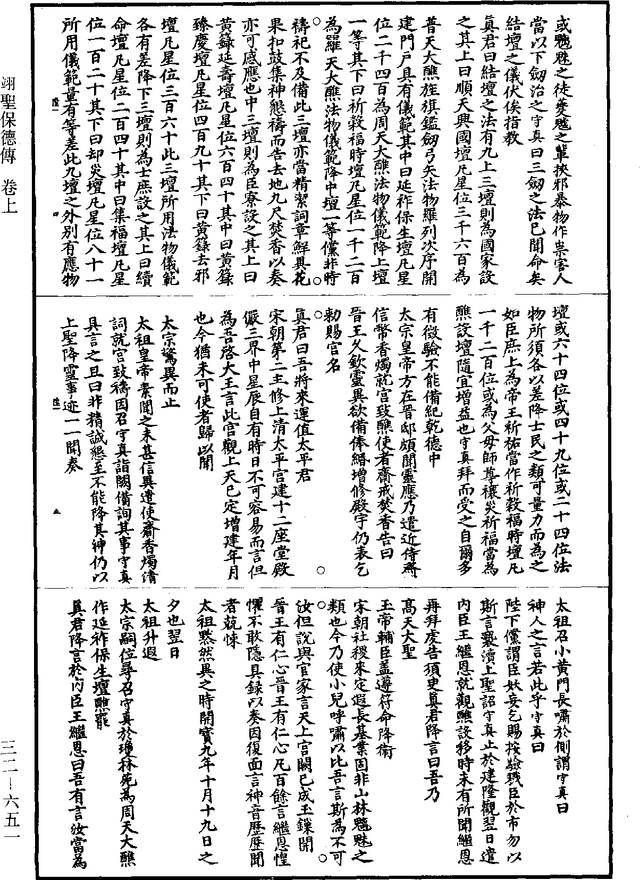 或魍魅之徒孽魃之輩挾邪暴物作祟害人
當以下劔治之守真曰三劔之法已聞命矣
結壇之儀伏俟指教
真君曰結壇之法有九上三壇則為國家設
之其上曰順天興國壇凡星位三千六百為
普天大醮旌旗鑑劔弓矢法物羅列次序開
建門戶具有儀範其中曰延祚保生壇凡星
位二千四百為周天大醮法物儀範降上壇
一等其下曰祈穀福時壇凡星位一千二百
為羅天大醮法物儀範降中壇一等儻非時
禱祀不及備此三壇亦當精絜詞章鮮異花
果扣鼓集神懇禱而告去地九尺焚香以奏
亦可感應也中三壇則為臣寮設之其上曰
黃籙延壽壇凡星位六百四十其中曰黃籙
臻慶壇凡星位四百九十其下曰黃籙去邪
壇凡星位三百六十此三壇所用法物儀範
各有差降下三壇則為士庶設之其上曰續
命壇凡星位二百四十其中曰集福壇凡星
位一百二十其下曰却災壇凡星位八十一
所用儀範量有等差此九壇之外別有應物
壇或六十四位或四十九位或二十四位法
物所須各以差降士民之類可量力而為之
如臣庶上為帝王祈祐當作祈穀福時壇凡
一千二百位或為父母師尊禳災祈福當為
醮設壇隨宜增益也守真拜而受之自爾多
有徵驗不能備紀乾德中
太宗皇帝方在晉邸頗聞靈應乃遣近侍齎
信幣香燭就宮致醮使者齋戒焚香告曰
晉王久欽靈異欲備俸緡增修殿宇仍表乞
勑賜宮名
真君曰吾將來運值太平君
宋朝第二主修上清太平宮建十二座堂殿
儼三界中星辰自有時日不可容易而言但
為吾啓大王言此宮觀上天已定增建年月
也今猶未可使者歸以聞
太宗驚異而止
太祖皇帝素聞之未甚信異遣使齎香燭清
詞就宮致禱因召守真詣闕備詢其事守真
具言之且曰非精誠懇至不能降其神仍以
上聖降靈事迹一一聞奏
太祖召小黃門長嘯於側謂守真曰
神人之言若此乎守真曰
陛下儻謂臣妖妄乞賜按驗戮臣於市勿以
斯言褻瀆上聖詔守真止於建隆觀翌日遣
內臣王繼恩就觀醮設移時未有所聞繼恩
再拜虔告須臾真君降言曰吾乃
高天大聖
玉帝輔臣蓋遵符命降衛
宋朝社稷來定遐長基業固非山林魍魅之
類也今乃使小兒呼嘯以比吾言斯為不可
汝但說與官家言天上宮闕已成玉鏁開
晉王有仁心晉王有仁心凡百餘言繼恩惶
懼不敢隱具録以奏因復面言神音歷歷聞
者兢悚
太祖默然異之時開寶九年十月十九日之
夕也翌日
太祖升遐
太宗嗣位尋召守真於瓊林苑為周天大醮
作延祚保生壇醮罷
真君降言於內臣王繼恩曰吾有言汝當為
翊聖保德傳 卷上
三二—六五一